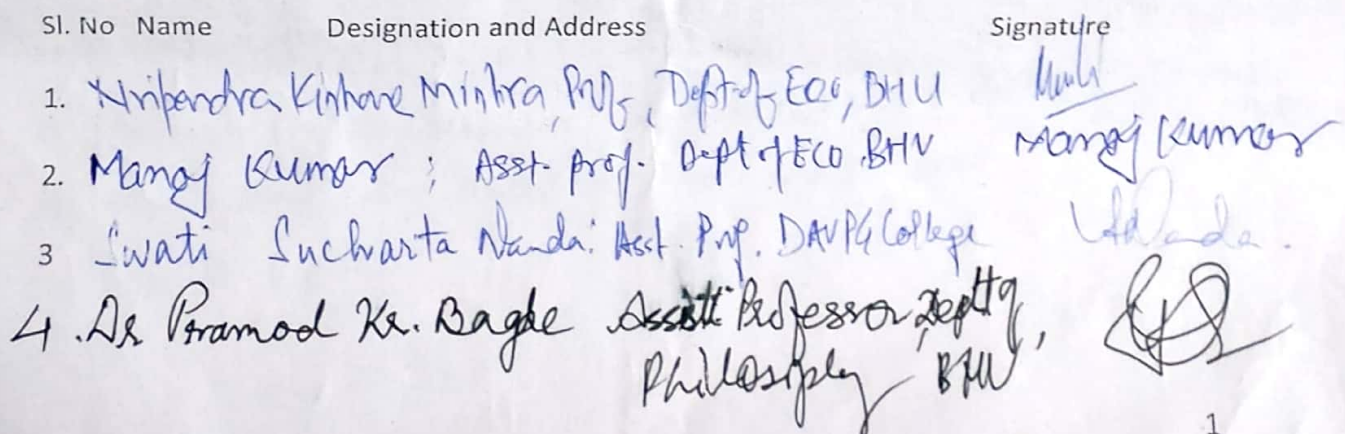 Sl. No Name Designation and Address Signature
1. Nripendra Kishore Mishra, Prof, Dept of Eco, BHU
2. Manoj Kumar ; Asst. prof. Dept of ECO BHU Manoj Kumar
3 Swati Sucharita Nanda. Asst. Prof. DAVPG College
4. Dr Pramod Kr. Bagde Assitt Professor, Deptt of,
Philosiphy BHU
1